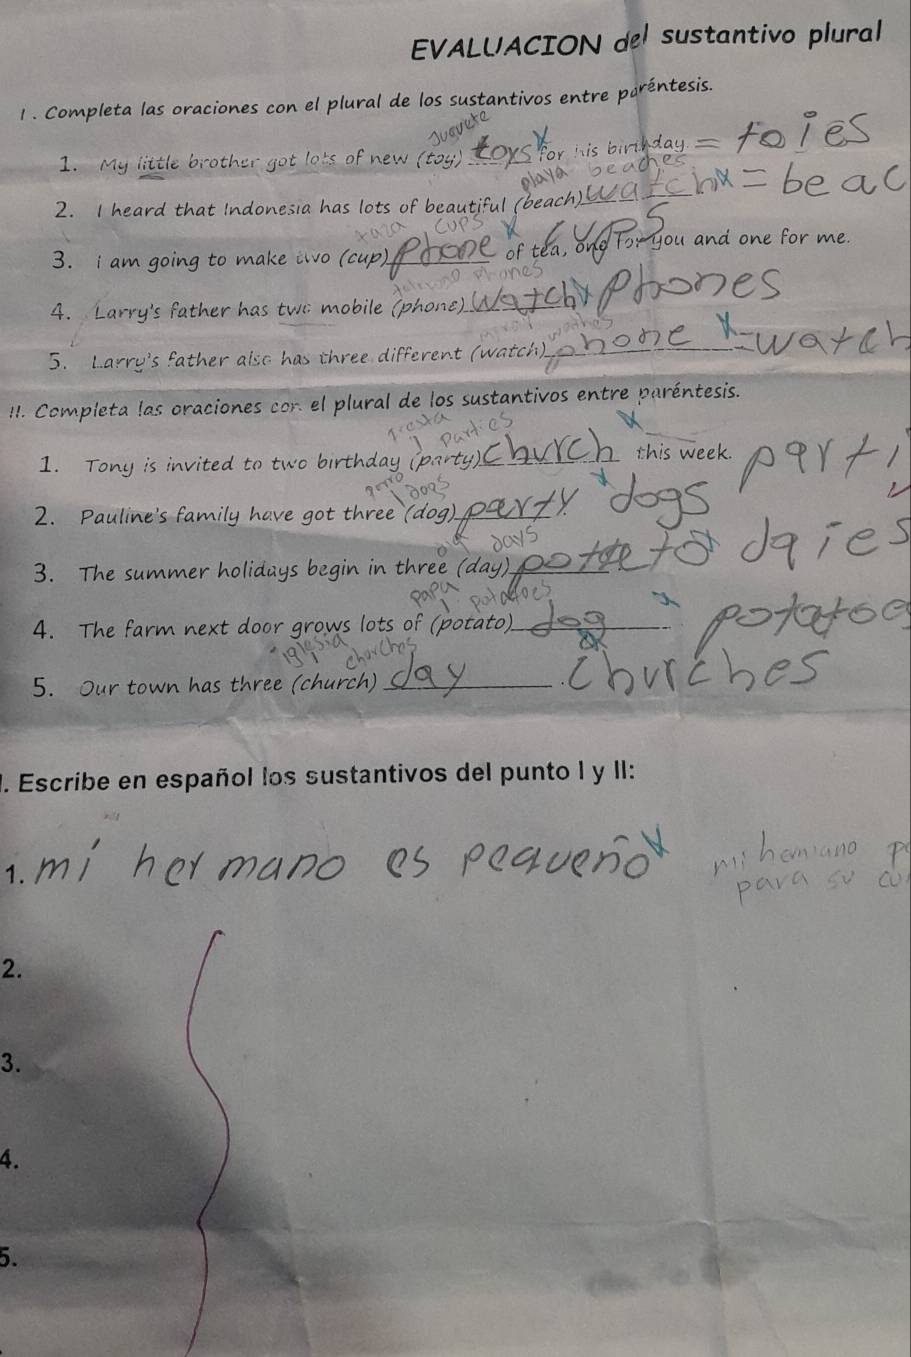 EVALUACION del sustantivo plural
1. Completa las oraciones con el plural de los sustantivos entre paréntesis.
Juguete
1. My little brother got lots of new (toy) toys for his birthday. = toies
playa beaches
2. I heard that Indonesia has lots of beautiful (beach) watch = beac
taza cups cups
3. i am going to make two (cup) phone of tea, one for you and one for me.
phones
4. Larry's father has two mobile (phone) watch phones
5. Larry's father also has three different (watch) phone = watch
II. Completa las oraciones con el plural de los sustantivos entre paréntesis.
fiesta parties
1. Tony is invited to two birthday (party) church this week. parti
perro dogs
2. Pauline's family have got three (dog) party. dogs
dia days
3. The summer holidays begin in three (day) daies
papa potatoes
4. The farm next door grows lots of (potato) dog. potatoe
iglesia churches
5. Our town has three (church) day. churches
I. Escribe en español los sustantivos del punto I y II:
1. mi hermano es pequeño mi hermano
para su cu
2.
3.
4.
5.